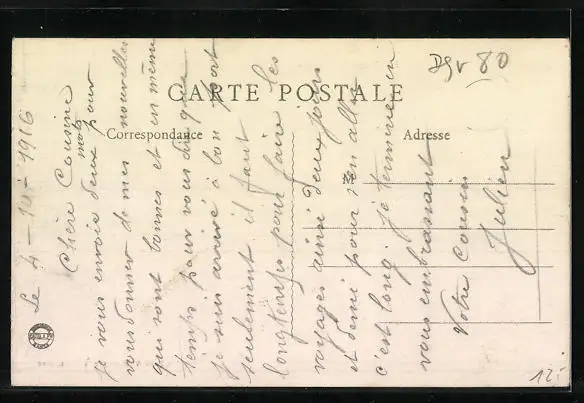 CARTE POSTALE
Correspondance
Adresse
Le 4-10-1916
Chère Cousine
je vous envoie deux mots pour
vous donner de mes nouvelles
qui sont bonnes et en même
temps pour vous dire que
je suis arrivé à bon port
seulement il faut
longtemps pour faire les
voyages ainsi deux jours
et demi pour s'en aller
c'est long je termine en
vous embrassant
Votre cousin
Julien
80
12.-